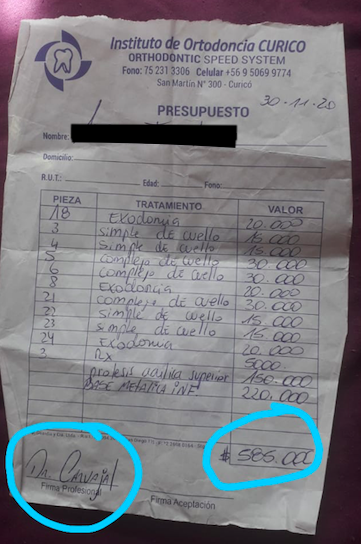 Instituto de Ortodoncia CURICO
ORTHODONTIC SPEED SYSTEM
Fono: 75 231 3306 Celular +56 9 5069 9774
San Martin N° 300 - Curicó
PRESUPUESTO 30-11-20
Nombre:
Domicilio:
R.U.T.: Edad: Fono:
PIEZA TRATAMIENTO VALOR
18 Exodoncia 20.000
3 simple de cuello 15.000
4 simple de cuello 15.000
5 complejo de cuello 30.000
6 complejo de cuello 30.000
8 Exodoncia 20.000
21 complejo de cuello 30.000
22 simple de cuello 15.000
23 simple de cuello 15.000
24 Exodoncia 20.000
2 Rx 5000
protesis acrilica superior 150.000
BASE METALICA INF 220.000
$ 585.000
Dr Carvajal
Firma Profesional
Firma Aceptación